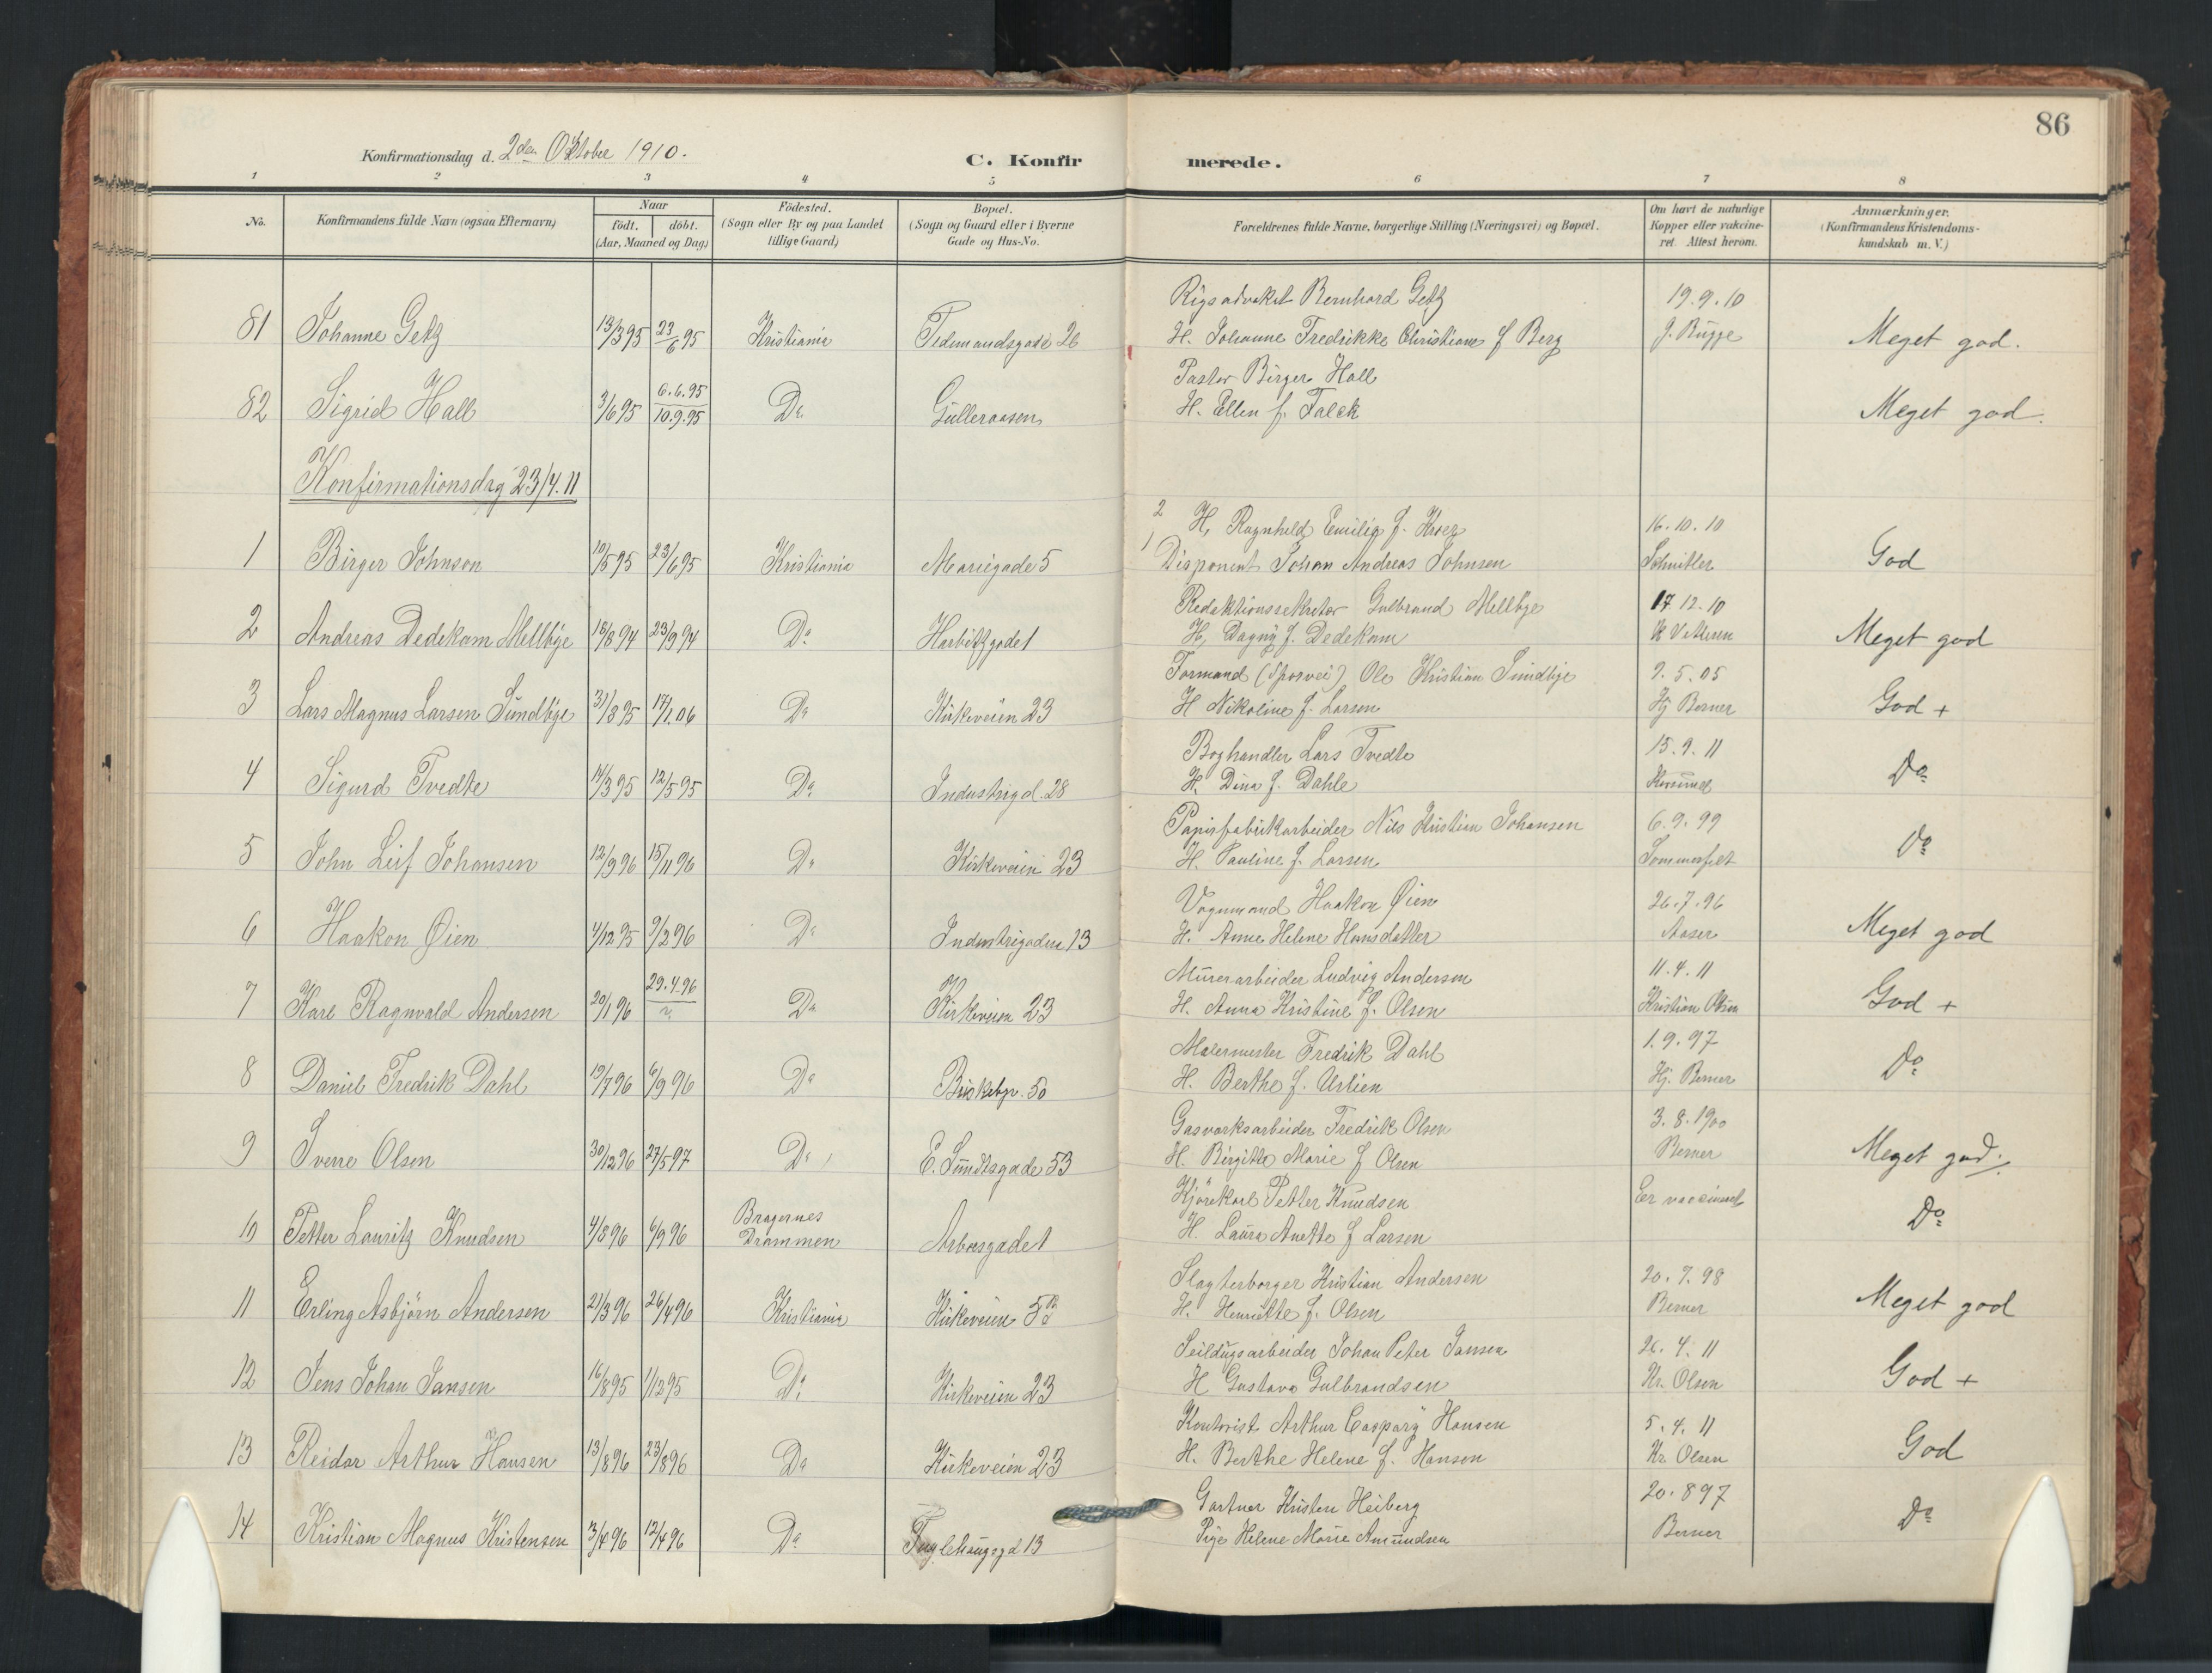 86
Konfirmationsdag d. 2den Oktober 1910.
C. Konfirmerede.
1 2 3 4 5 6 7 8
No. Konfirmandens fulde Navn (ogsaa Efternavn) Naar födt. döbt. (Aar, Maaned og Dag) Födested. (Sogn eller By og paa Landet tillige Gaard) Bopæl. (Sogn og Gaard eller i Byerne Gade og Hus-No. Forældrenes fulde Navne, borgerlige Stilling (Næringsvei) og Bopæl. Om havt de naturlige Kopper eller vakcineret. Attest herom. Anmærkninger. (Konfirmandens Kristendomskundskab m. V.)
Rigsadvokat Bernhard Getz 19.9.10
81 Johanne Getz 13/3 95 23/6 95 Kristiania Tidemandsgade 26 H. Johanne Fredrikke Christiane f Berg J. Bugge Meget god.
Pastor Birger Hall
82 Sigrid Hall 3/6 95 6.6.95 10.9.95 Do Gulleraasen H. Ellen f. Falck Meget god.
Konfirmationsdag 23/4.11
2 H, Ragnhild Emilie f. 16.10.10
1 Birger Johnsen 10/5 95 23/6 95 Kristiania Mariegade 5 1 Disponent Johan Andreas Johnsen Schnitler God
Redaktionssekretær Gulbrand Mellbye 17 12.10
2 Andreas Dedekam Mellbye 18/8 94 23/9 94 Do Harbitzgade 1 H, Dagny f. Dedekam Meget god
Formand (Sporvei) Ole Kristian Sundbye 9.5.05
3 Lars Magnus Larsen Sundbye 31/8 95 14/1.06 Do Kirkeveien 23 H Nikoline f. Larsen Hj Berner God +
Boghandler Lars Tvedte 15.9.11
4 Sigurd Tvedte 14/3 95 12/5 95 Do Industrigd. 28 H. Dina f. Dahle Do
Papirfabrikarbeider Nils Kristian Johansen 6.9.99
5 John Leif Johansen 12/9 96 15/11 96 Do Kirkeveien 23 H. Pauline f. Larsen Sommerfelt Do
Vognmand Haakon Øien 26.7.96
6 Haakon Øien 4/12 95 9/2 96 Do Industrigaden 13 H. Anne Helene Hansdatter Aaser Meget god
Murerarbeider Ludvig Andersen 11.4.11
7 Karl Ragnvald Andersen 20/1 96 29.4.96 Do Kirkeveien 23 H. Anna Kristine f. Olsen Kristian Olsen God +
Malermester Fredrik Dahl 1.9.97
8 Daniel Fredrik Dahl 19/7 96 6/9 96 Do Briskebyv. 50 H. Berthe f. Urlien Hj. Berner Do
Gasværksarbeider Fredrik Olsen 3.8.1900
9 Sverre Olsen 30/12 96 27/5 97 Do E. Sundtsgade 53 H. Birgitte Marie f Olsen Berner Meget god.
Kjörekarl Petter Knudsen Er vaccineret
10 Petter Lauritz Knudsen 4/8 96 6/9 96 Bragernes Drammen Arbosgade 1 H. Laura Anette f Larsen Do
Slagterborger Kristian Andersen 20.7.98
11 Erling Asbjörn Andersen 21/3 96 26/4 96 Kristiania Kirkeveien 5B H. Henriette f. Olsen Berner Meget god
Seildugsarbeider Johan Peter Jansen 26.4.11
12 Jens Johan Jansen 16/8 95 1/12 95 Do Kirkeveien 23 H Gustava Gulbrandsen Kr. Olsen God +
Kontorist Arthur Caspary Hansen 5.4.11
13 Reidar Arthur Hansen 13/8 96 23/8 96 Do Kirkeveien 23 H. Berthe Helene f. Hansen Kr. Olsen God
Gartner Kristen Heiberg 20.8 97
14 Kristian Magnus Kristensen 3/4 96 12/4 96 Do Fuglehaugsgd 13 Pige Helene Marie Amundsen Berner Do